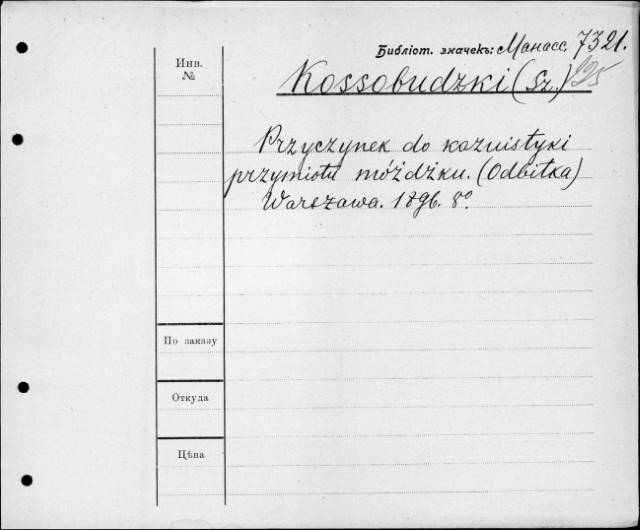 Библіот. значекъ: Манасс. 7321.
Инв.
№
Kossobudzki (Sz.) 125
Przyczynek do kazuistyki
przymiotu móżdżku. (Odbitka)
Warszawa. 1896. 8º.
По заказу
Откуда
Цѣна